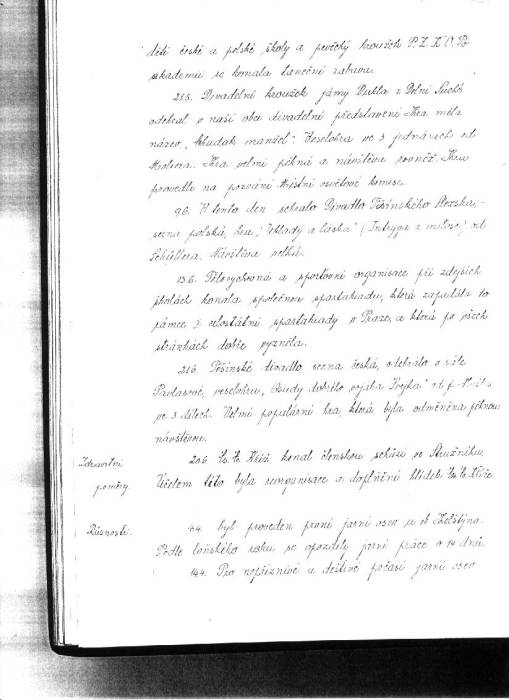 děti české a polské školy a pěvecký kroužek P.Z.K.O. Po
akademii se konala taneční zábava.
21.5. Divadelní kroužek jámy Dukla z Dolní Suché
sehrál v naší obci divadelní představení. Hra měla
název „Chudák manžel“. Veselohra ve 3 jednáních od
Moliera. Hra velmi pěkná a návštěva rovněž. Hru
provedli na pozvání Místní osvětové komise.
9.6. V tento den sehrálo Divadlo Těšínského Slezska,
scena polská, hru: „Úklady a láska“ (Intryga a milość) od
Schillera. Návštěva velká.
13.6. Tělovýchovná a sportovní organisace při zdejších
školách konala společnou spartakiadu, která zapadala do
rámce I. celostátní spartakiady v Praze, a která po všech
stránkách dobře vyzněla.
21.6. Těšínské divadlo scena česká, sehrálo v sále
Pavlasově, veselohru, „Osudy dobrého vojáka Švejka“ od
ve 3 dílech. Velmi populární hra, která byla odměněna pěknou
návštěvou.
Zdravotní
poměry.
20.6. Čs. č. Kříž konal členskou schůzi ve Stružníku.
Účelem této byla reorganisace a doplnění hlídek Čs. č. Kříže.
Různosti.
4.4. byl proveden první jarní osev u ob.
Podle loňského roku se opozdily jarní práce o 14 dnů.
14.4. Pro nepříznivé a deštivé počasí jarní osev